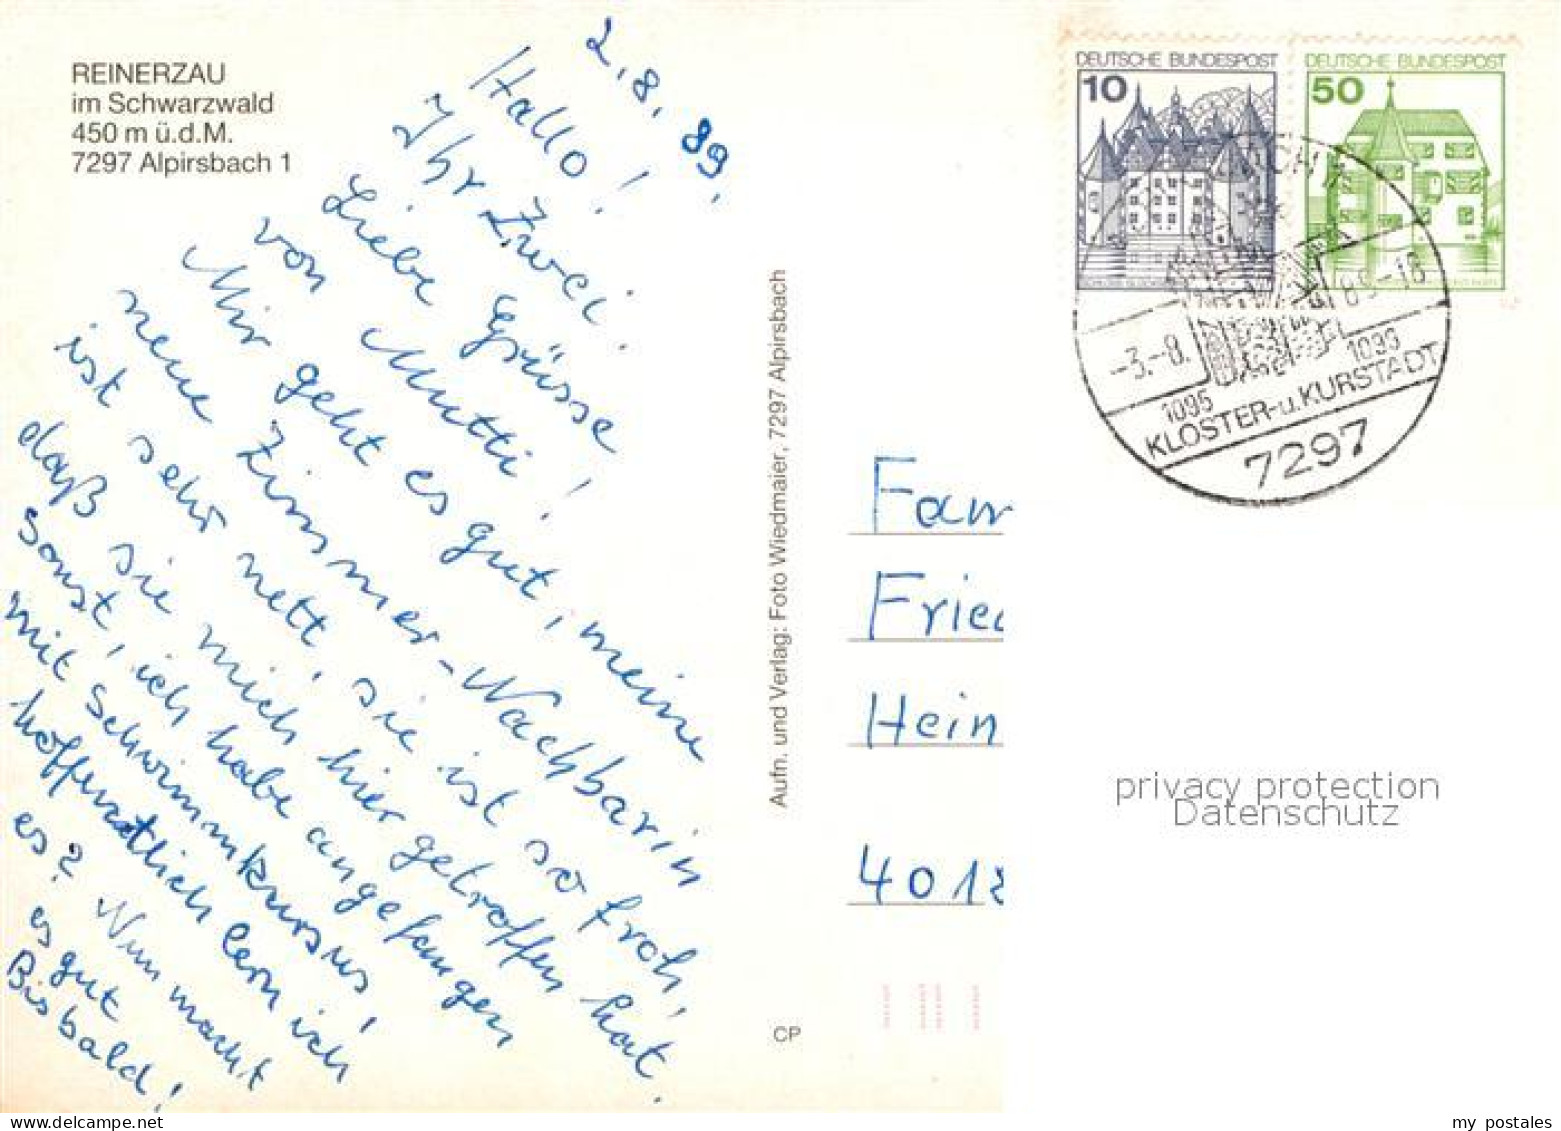 REINERZAU
im Schwarzwald
450 m ü.d.M.
7297 Alpirsbach 1
2.8.89.
Hallo!
Ihr Zwei!
Liebe Grüsse
von Mutti!
Mir geht es gut, meine
neue Zimmer-Nachbarin
ist sehr nett, sie ist so froh,
daß sie mich hier getroffen hat.
Sonst, ich habe angefangen
mit Schwimmkursus,
hoffentlich lern ich
es? Nun macht
es gut
Bis bald!
Aufn. und Verlag: Foto Wiedmaier, 7297 Alpirsbach
CP
DEUTSCHE BUNDESPOST
10
DEUTSCHE BUNDESPOST
50
-3.-8.
89-18
1095
1099
KLOSTER-u.KURSTADT
7297
Fam
Fried
Hein
401
privacy protection
Datenschutz
my postales